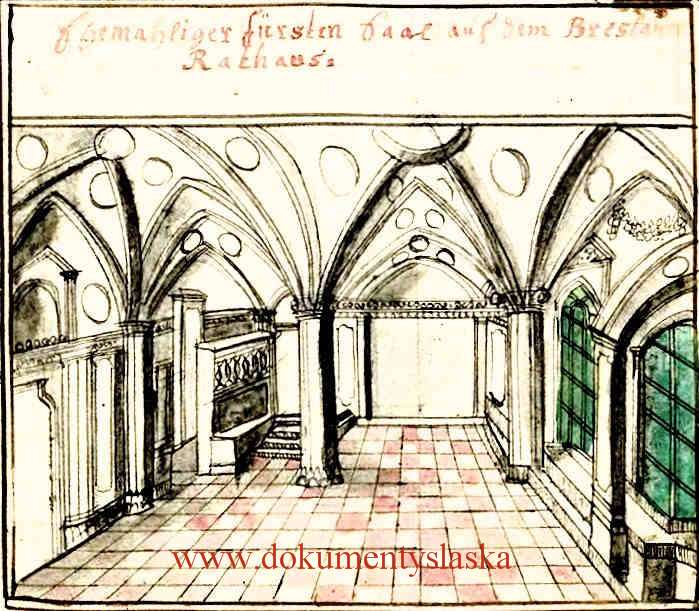 Ehemahliger fürsten Saal auf dem Breslau
Rathaus.
www.dokumentyslaska